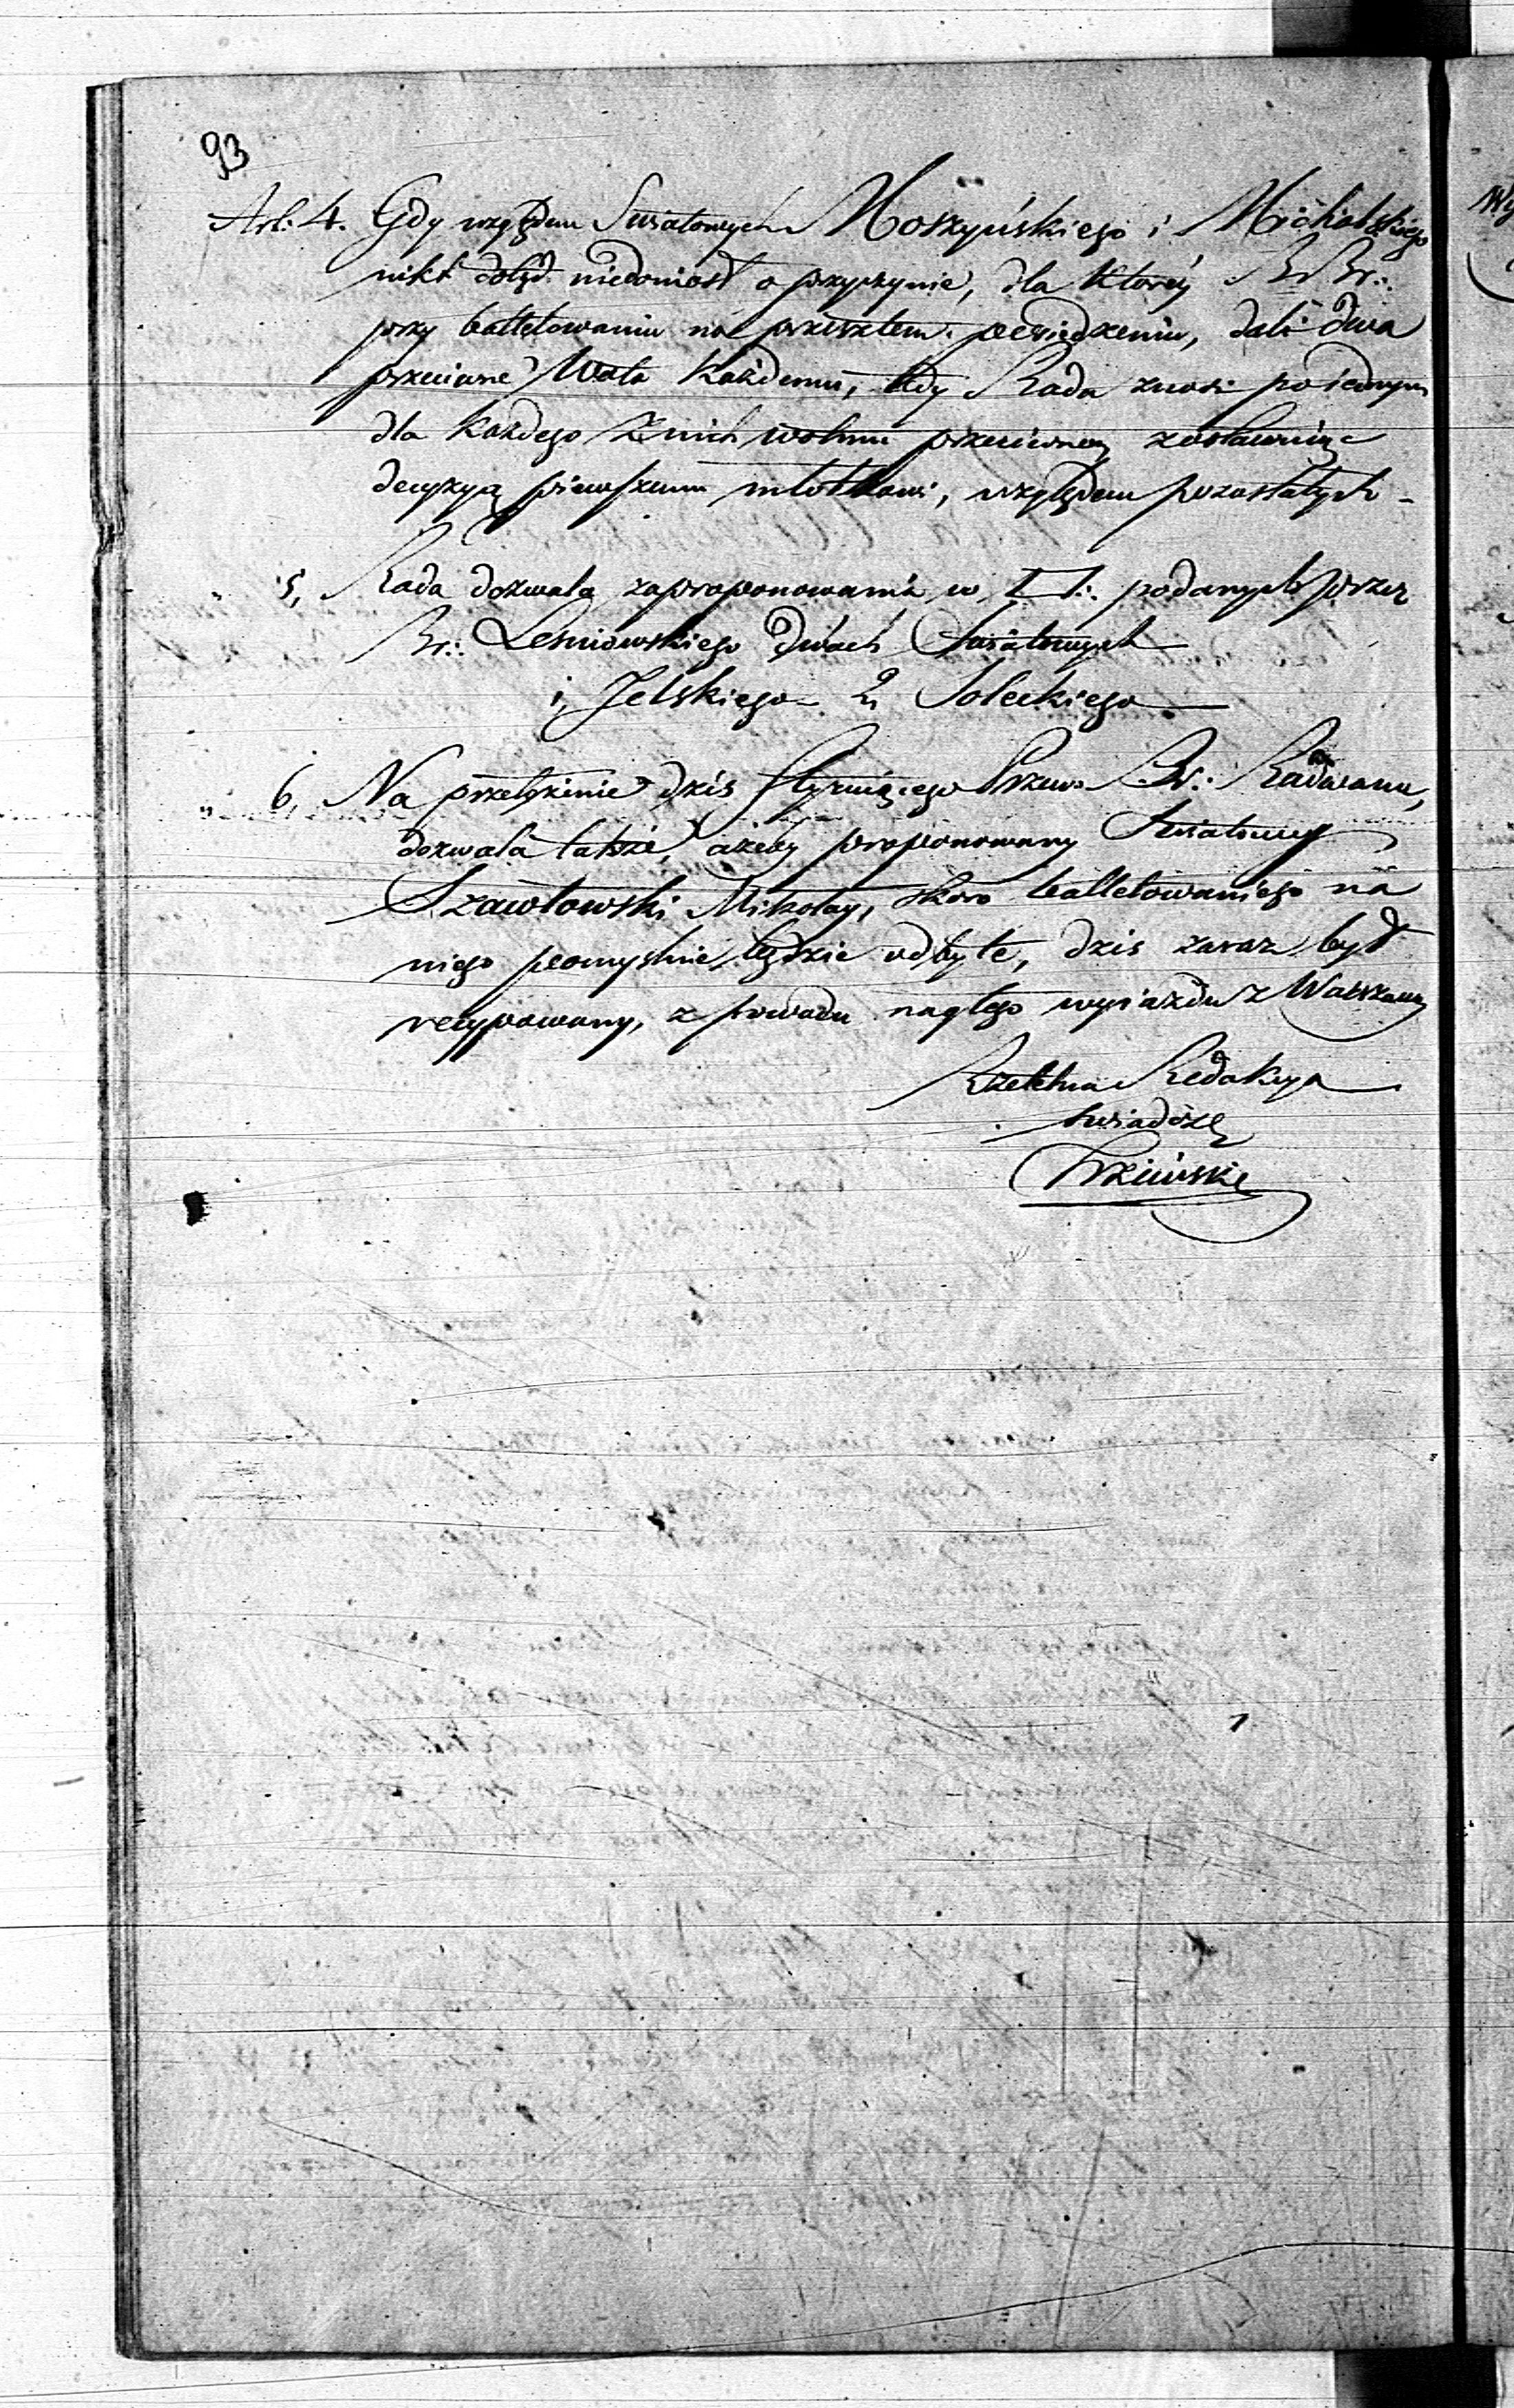 93
Art: 4. Gdy względem Swiatowych Moszyńskiego i Michalskiego
nikt dotąd niedoniosł o przyczynie, dla Ktorey BrBr∴
przy balletowaniu na przeszłem posiedzeniu, dali dwa
przeciwne Wota Każdemu, tedy Rada znosi po iednym
dla Każdego z nich wotum przeciwnem zostawuiąc
decyzyą pierwszemu młotkowi, względem pozostałych -
" 5, Rada dozwala zaproponowania w podanych przez
Br∴ Lesniowskiego dwóch Swiatowych
1, Jelskiego 2, Soleckiego
" 6, Na przełożenie dziś Przew. Br∴ Radwana,
dozwala także, ażeby proponowany Swiatowy
Szawłowski Mikołay, skoro balletowanie na
niego pomyslnie będzie odbyte, dzis zaraz był
recypowany, z powodu nagłego wyiazdu z Warszawy
Rzetelna Redakcya
swiadczę